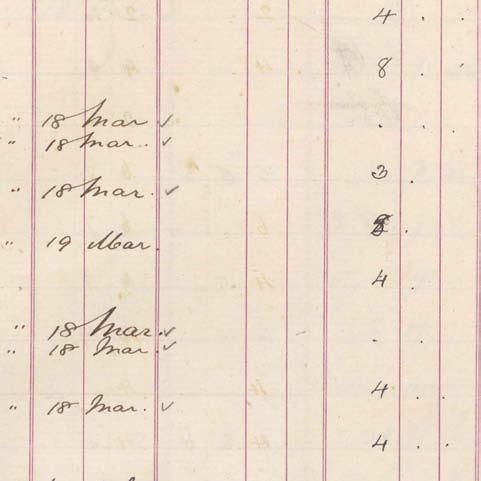 4 . .
8 . .
" 18 Mar ✓ . . .
" 18 Mar. ✓
3 .
" 18 Mar. ✓
.
" 19 Mar.
4 .
" 18 Mar. ✓ . .
" 18 Mar. ✓
4 . .
" 18 Mar. ✓
4 . .